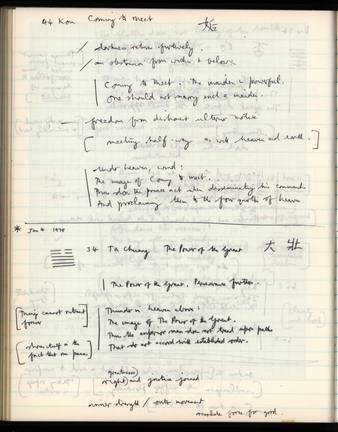 44 Kou Coming to Meet 姤
/ darkness returns furtively.
/ an obstruction from within & below
Coming to Meet. The maiden is powerful.
One should not marry such a maiden.
— freedom from dishonest ulterior motive
[meeting half-way as with heaven and earth.]
Under heaven, wind:
The image of Coming to Meet.
Thus does the prince act when disseminating his commands
And proclaiming them to the four quarters of heaven
* Jan 4 1978
34 Ta Chuang The Power of the Great 大 壯
The Power of the Great. Perseverance furthers.
[Things cannot retreat forever]
Thunder in heaven above:
The image of The Power of the Great.
Thus the superior man does not tread upon paths
That do not accord with established order.
[shows itself in the fact that one pauses]
(greatness)
right and justice joined
inner strength / outer movement
force for good.